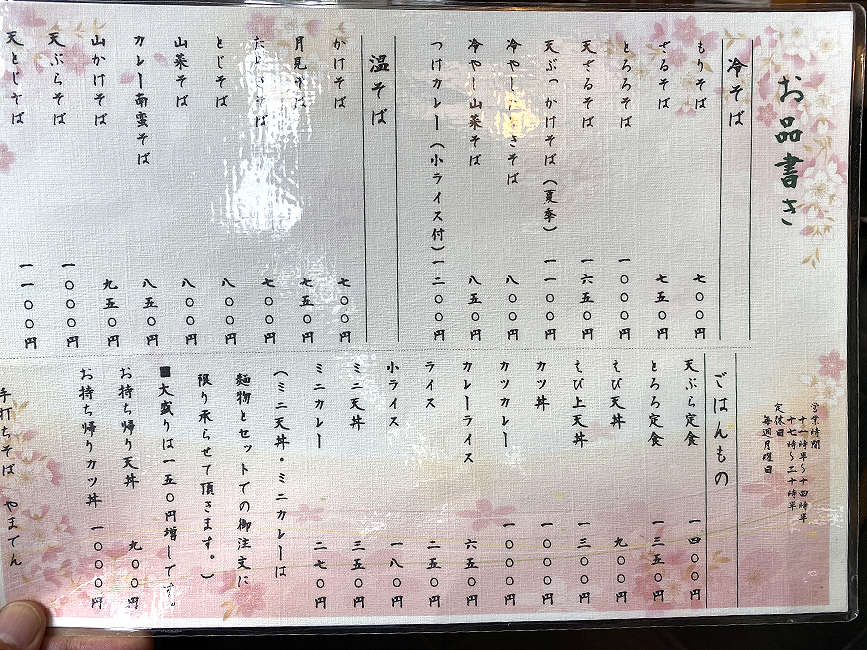 お品書き
冷そば
もりそば 七〇〇円
ざるそば 七五〇円
とろろそば 一〇〇〇円
天ざるそば 一六五〇円
天ぶっかけそば(夏季) 一一〇〇円
冷やしたぬきそば 八〇〇円
冷やし山菜そば 八五〇円
つけカレー(小ライス付)一二〇〇円
温そば
かけそば 七〇〇円
月見そば 七五〇円
たぬきそば 七〇〇円
とじそば 八〇〇円
山菜そば 八〇〇円
カレー南蛮そば 八五〇円
山かけそば 九五〇円
天ぷらそば 一〇〇〇円
天とじそば 一一〇〇円
営業時間
十一時半〜十四時半
十七時〜二十時半
定休日
毎週月曜日
ごはんもの
天ぷら定食 一四〇〇円
とろろ定食 一三五〇円
えび天丼 九〇〇円
えび上天丼 一三〇〇円
カツ丼 一〇〇〇円
カツカレー 一〇〇〇円
カレーライス 六五〇円
ライス 二五〇円
小ライス 一八〇円
ミニ天丼 三五〇円
ミニカレー 二七〇円
(ミニ天丼・ミニカレーは
麺物とセットでの御注文に
限り承らせて頂きます。)
■大盛りは一五〇円増しです。
お持ち帰り天丼 九〇〇円
お持ち帰りカツ丼 一〇〇〇円
手打ちそば やまてん